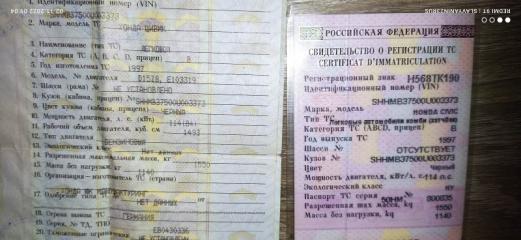 1. Идентификационный номер (VIN)
SHHMB37500U003373
2. Марка, модель ТС
ХОНДА ЦИВИК
3. Наименование (тип ТС)
ЛЕГКОВОЙ
4. Категория ТС (А, В, С, D, прицеп) В
5. Год изготовления ТС 1997
6. Модель, № двигателя D15Z8, E103319
7. Шасси (рама) № НЕ УСТАНОВЛЕНО
8. Кузов (кабина, прицеп) № SHHMB37500U003373
9. Цвет кузова (кабины, прицепа) ЧЕРНЫЙ
10. Мощность двигателя, л. с. (кВт) 114(84)
11. Рабочий объем двигателя, куб. см 1493
12. Тип двигателя БЕНЗИНОВЫЙ
13. Экологический класс
14. Разрешенная максимальная масса, кг 1550
15. Масса без нагрузки, кг 1140
16. Организация—изготовитель ТС (страна)
17. Одобрение типа ТС № от
НЕТ ДАННЫХ
ГЕРМАНИЯ
18. Страна вывоза ТС
19. Серия, № ТД, ТПО ЕВ0430336
20. Таможенные ограничения
НЕ УСТАНОВЛЕНЫ
РОССИЙСКАЯ ФЕДЕРАЦИЯ
СВИДЕТЕЛЬСТВО О РЕГИСТРАЦИИ ТС
CERTIFICAT D'IMMATRICULATION
Регистрационный знак Н568ТК190
Идентификационный номер (VIN)
SHHMB37500U003373
Марка, модель ХОНДА СИВС
Тип ТС Легковые автомобили комби (хэтчбек)
Категория ТС (ABCD, прицеп) В
Год выпуска ТС 1997
Шасси № ОТСУТСТВУЕТ
Кузов № SHHMB37500U003373
Цвет Черный
Мощность двигателя, кВт/л. с. 114 л.с.
Экологический класс
Паспорт ТС серия 50НМ № 800835
Разрешенная max масса, kg 1550
Масса без нагрузки, kg 1140